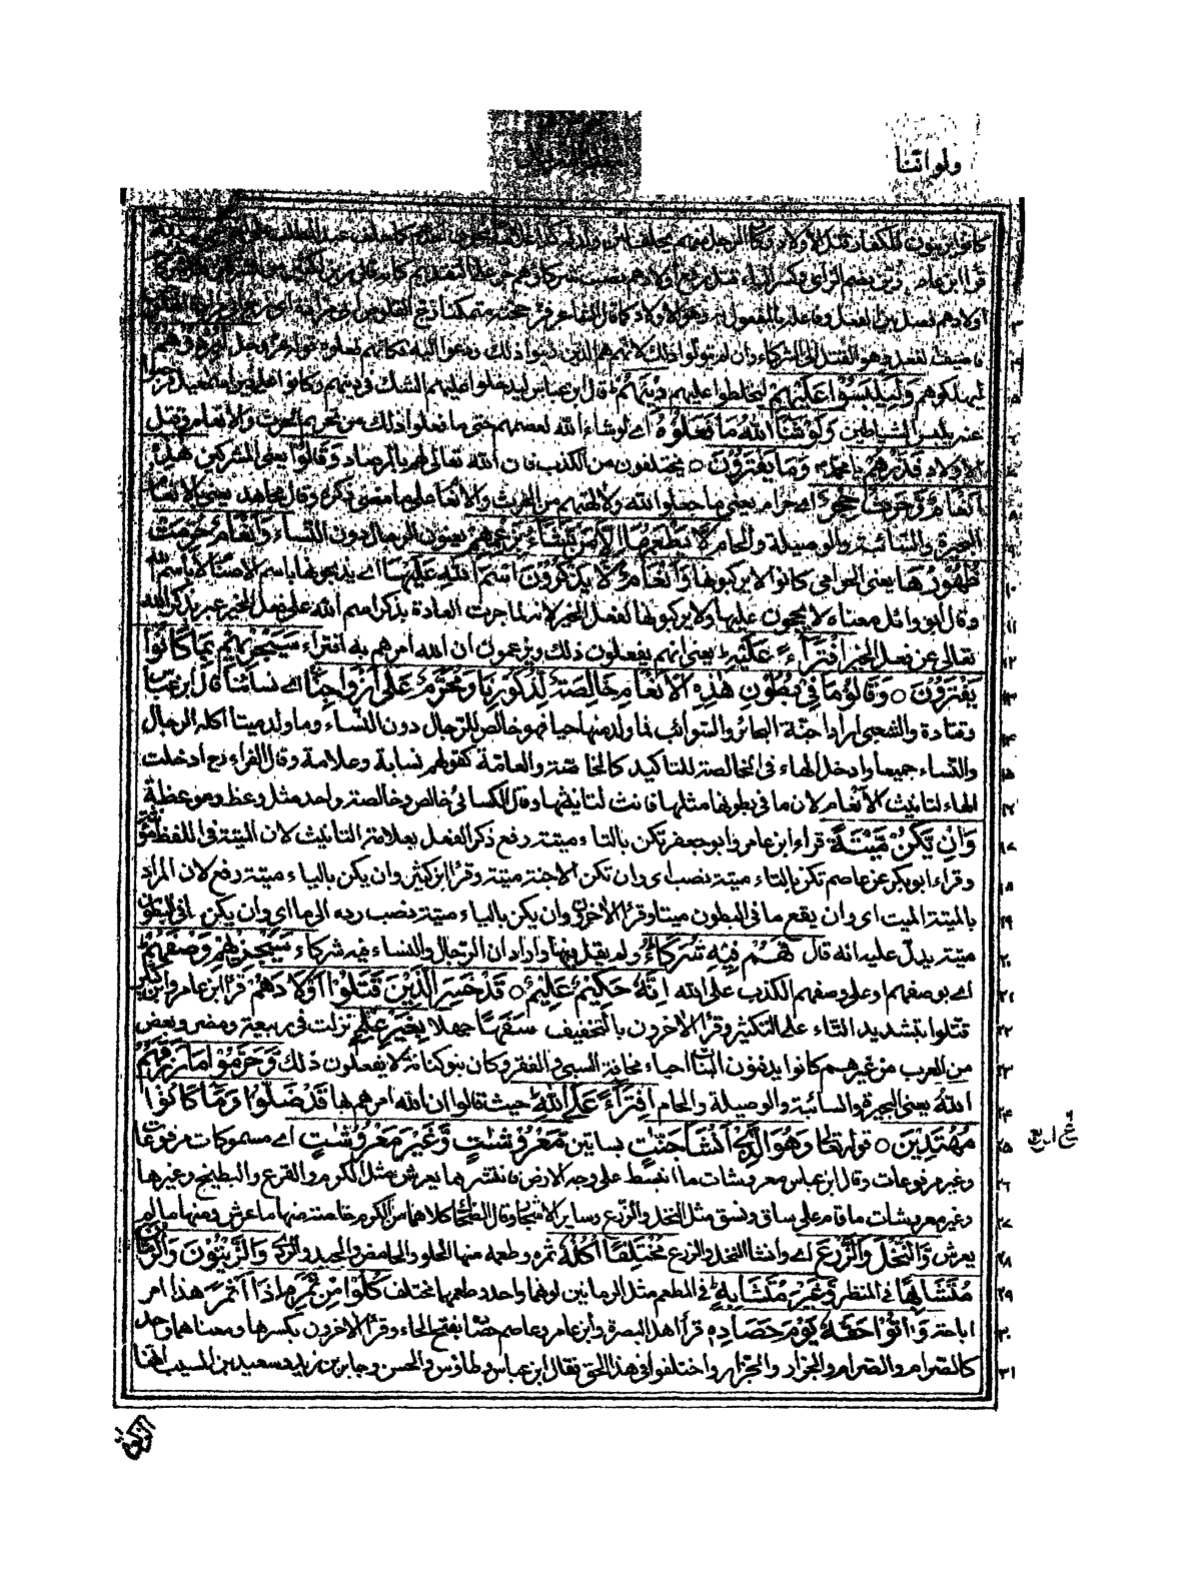 ولواننا
كانوا يزينون للكفار قتل الأولاد
قرأ ابن عامر زين بضم الزاي وكسر الياء قتل رفع أولادهم نصب شركائهم جر على التقديم
أولادهم فصل بين الفعل وفاعله بالمفعول به وهو الأولاد كما قال الشاعر فزججته متمكنا زج القلوص أبي مزاده
فاضيف الفعل وهو القتل إلى الشركاء وان لم يتولوا ذلك لانهم هم الذين زينوا ذلك ودعوا اليه فكانهم فعلوه قوله عز وجل ليردوهم
ليهلكوهم وَلِيَلْبِسُوا عَلَيْهِمْ ليخلطوا عليهم دِيْنَهُمْ قال ابن عباس ليدخلوا عليهم الشك في دينهم وكانوا على دين اسمعيل فرجعوا
عنه بلبس الشياطين وَلَوْ شَآءَ اللهُ مَا فَعَلُوْهُ اے لو شاء الله لعصمهم حتى ما فعلوا ذلك من تحريم الحرث والانعام وقتل
الاولاد فَذَرْهُمْ يا محمد وَمَا يَفْتَرُوْنَ ○ يختلقون من الكذب فان الله تعالى لهم بالمرصاد وَقَالُوْا يعنى المشركين هٰذِهٖ
اَنْعَامٌ وَّحَرْثٌ حِجْرٌ اے حرام يعنى ما جعلوا لله ولالهتهم من الحرث والانعام على ما مضى ذكره وقال مجاهد يعنى بالانعام
البحيرة والسائبة والوصيلة والحام لَّا يَطْعَمُهَا اِلَّا مَنْ نَّشَآءُ بِزَعْمِهِمْ يعنون الرجال دون النساء وَاَنْعَامٌ حُرِّمَتْ
ظُهُوْرُهَا يعنى الحوامى كانوا لا يركبونها وَاَنْعَامٌ لَّا يَذْكُرُوْنَ اسْمَ اللهِ عَلَيْهَا اے يذبحونها باسم الاصنام لا باسم الله
وقال ابو وائل معناه لا يحجون عليها ولا يركبونها لفعل الخير لانه لما جرت العادة بذكر اسم الله على فعل الخير عبر بذكر الله
تعالى عن فعل الخير افْتِرَآءً عَلَيْهِ يعنى انهم يفعلون ذلك ويزعمون ان الله امرهم به افتراء سَيَجْزِيْهِمْ بِمَا كَانُوْا
يَفْتَرُوْنَ ○ وَقَالُوْا مَا فِيْ بُطُوْنِ هٰذِهِ الْاَنْعَامِ خَالِصَةٌ لِّذُكُوْرِنَا وَمُحَرَّمٌ عَلٰٓى اَزْوَاجِنَا اے نسائنا قال ابن عباس
وقتادة والشعبى اراد اجنة البحائر والسوائب فما ولد منها حيا فهو خالص للرجال دون النساء وما ولد ميتا اكله الرجال
والنساء جميعا وادخل الهاء فى الخالصة للتاكيد كالخاصة والعامة كقولهم نسابة وعلامة وقال الفراء رح ادخلت
الهاء لتانيث الانعام لان ما فى بطونها مثلها فانث لتانيثها وقال الكسائى خالص وخالصة واحد مثل وعظ وموعظة
وَاِنْ يَّكُنْ مَّيْتَةً قراء ابن عامر وابو جعفر تكن بالتاء ميتة رفع ذكر الفعل بعلامة التانيث لان الميتة فى اللفظ مؤنثة
وقراء ابو بكر عن عاصم تكن بالتاء ميتة نصب اى وان تكن الاجنة ميتة وقرأ ابن كثير وان يكن بالياء ميتة رفع لان المراد
بالميتة الميت اى وان يقع ما فى البطون ميتا وقرأ الآخرون وان يكن بالياء ميتة نصب رده الى ما اى وان يكن ما فى البطون
ميتة يدل عليه انه قال فَهُمْ فِيْهِ شُرَكَآءُ ولم يقل فيها واراد ان الرجال والنساء فيه شركاء سَيَجْزِيْهِمْ وَصْفَهُمْ
اے بوصفهم او على وصفهم الكذب على الله اِنَّهٗ حَكِيْمٌ عَلِيْمٌ ○ قَدْ خَسِرَ الَّذِيْنَ قَتَلُوْٓا اَوْلَادَهُمْ قرأ ابن عامر وابن كثير
قتلوا بتشديد التاء على التكثير وقرأ الآخرون بالتخفيف سَفَهًا جهلا بِغَيْرِ عِلْمٍ نزلت فى ربيعة ومضر وبعض
من العرب من غيرهم كانوا يدفنون البنات احياء مخافة السبى والفقر وكان بنو كنانة لا يفعلون ذلك وَّحَرَّمُوْا مَا رَزَقَهُمُ
اللهُ يعنى البحيرة والسائبة والوصيلة والحام افْتِرَآءً عَلَى اللهِ حيث قالوا ان الله امرهم بها قَدْ ضَلُّوْا وَمَا كَانُوْا
مُهْتَدِيْنَ ○ قوله تعالى وَهُوَ الَّذِيْٓ اَنْشَاَ جَنّٰتٍ بساتين مَّعْرُوْشٰتٍ وَّغَيْرَ مَعْرُوْشٰتٍ اے مسموكات مرفوعات
وغير مرفوعات وقال ابن عباس معروشات ما انبسط على وجه الارض فانتشر مما يعرش مثل الكرم والقرع والبطيخ وغيرها
وغير معروشات ما قام على ساق ونسق مثل النخل والزرع وساير الاشجار وقال الضحاك كلاهما من الكرم خاصة منها ما عرش ومنها ما لم
يعرش وَّالنَّخْلَ وَالزَّرْعَ اے وانشا النخل والزرع مُخْتَلِفًا اُكُلُهٗ ثمره وطعمه منها الحلو والحامض والجيد والردى وَالزَّيْتُوْنَ وَالرُّمَّانَ
مُتَشَابِهًا فى المنظر وَّغَيْرَ مُتَشَابِهٍ فى المطعم مثل الرمانين لونهما واحد وطعمهما مختلف كُلُوْا مِنْ ثَمَرِهٖٓ اِذَآ اَثْمَرَ هذا امر
اباحة وَاٰتُوْا حَقَّهٗ يَوْمَ حَصَادِهٖ قرأ اهل البصرة وابن عامر وعاصم حصاده بفتح الحاء وقرأ الآخرون بكسرها ومعناهما واحد
كالصرام والصرام والجزار والجزار واختلفوا فى هذا الحق فقال ابن عباس وطاؤس والحسن وجابر بن زيد وسعيد بن المسيب انها